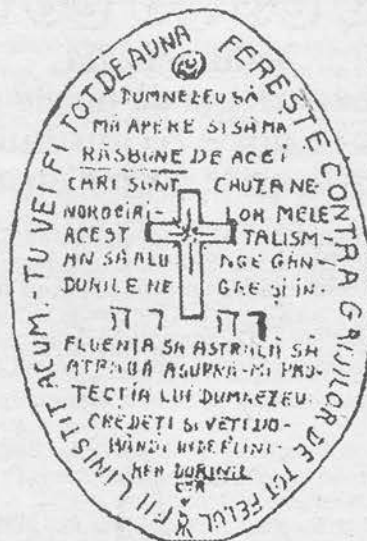 TU VEI FI TOTDEAUNA FERESTE CONTRA GAIJILOR DE TOT FELUL
FII LINISTIT ACUM.-
DUMNEZEU SĂ
MĂ APERE SI SĂ MA
RĂSBUNE DE ACEI
CARI SUNT CAUZA NE-
NOROCIRI- LOR MELE
ACEST TALISM-
AN SĂ ALU NGE GÂN-
DURILE NE GRE ȘI IN-
FLUENȚA SA ASTRALĂ SĂ
ATRAGĂ ASUPRA-MI PRO-
TECȚIA LUI DUMNEZEU
CREDEȚI SI VEȚI DO-
BÂNDI INDEPLINI-
REA